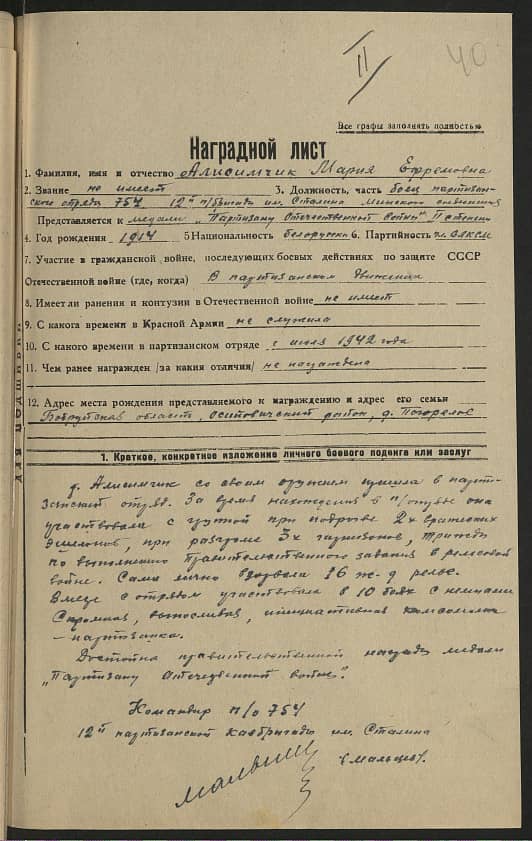 II
40
Все графы заполнять полностью
Наградной лист
1. Фамилия, имя и отчество Алисимчик Мария Ефремовна
2. Звание не имеет 3. Должность, часть боец партизан-
ского отряда 754 12й п/бригады им. Сталина Минского соединения
Представляется к медали „Партизану Отечественной войны" II степени
4. Год рождения 1914 5 Национальность белоруска 6. Партийность чл. ВЛКСМ
7. Участие в гражданской войне, последующих боевых действиях по защите СССР
Отечественной войне (где, когда) В партизанском движении
8. Имеет ли ранения и контузии в Отечественной войне не имеет
9. С какога времени в Красной Армии не служила
10. С какого времени в партизанском отряде с июля 1942 года
11. Чем ранее награжден /за какия отличия/ не награждена
12. Адрес места рождения представляемого к награждению и адрес его семьи
Бобруйская область, Осиповичский район, д. Погорелое
для подшивки
1. Краткое, конкретное изложение личного боевого подвига или заслуг
Алисимчик со своим оружием пришла в парти-
занский отряд. За время нахождения в п/отряде она
участвовала с группой при подрыве 2х вражеских
эшелонов, при разгроме 3х гарнизонов, трижды
по выполнению правительственного задания в рельсовой
войне. Сама лично взорвала 16 ж-д рельс.
Вместе с отрядом участвовала в 10 боях с немцами
Скромная, выносливая, инициативная комсомолка
– партизанка.
Достойна правительственной награды медали
„Партизану Отечественной войны".
Командир п/о 754
12й партизанской кавбригады им. Сталина
(Мальцев).